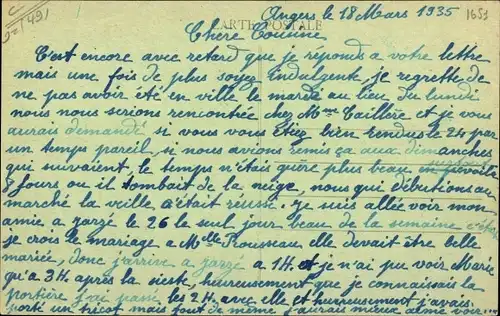 Angers le 18 Mars 1935
1651
91491
CARTE POSTALE
Chère Cousine
C'est encore avec retard que je réponds a votre lettre
mais une fois de plus soyez Indulgente, je regrette de
ne pas avoir été en ville le mardi au lieu du lundi
nous nous serions rencontrée chez Mme Taillere et je vous
aurais demandé si vous vous étiez bien Rendus le 24 par
un temps pareil, si nous avions remis ça aux dimanches
qui suivaient le temps n'était guère plus beau
surtout
8 jours ou il tombait de la neige, nous qui débutions au
marché la veille c'était réussi. Je suis allée voir mon
amie a Jarzé le 26 le seul jour beau de la semaine c'était
je crois le mariage a Melle Rousseau elle devait être belle
mariée, donc j'arrive a Jarzé a 1H et je n'ai pu voir Marie
qu'a 3H après la sieste, heureusement que je connaissais la
portière j'ai passé les 2H avec elle et heureusement j'avais
porté un tricot mais tout de même j'aurais mieux aimé voir...